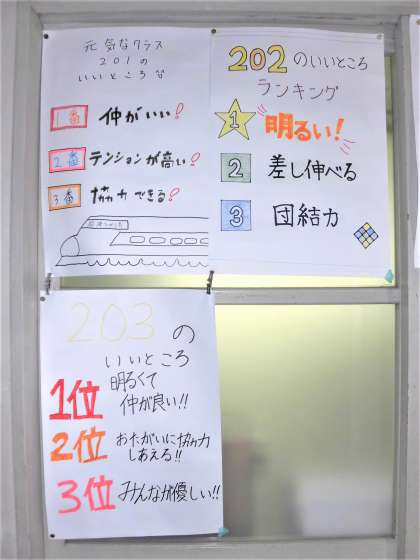 元気なクラス
201の
いいところ
1番 仲がいい!
2番 テンションが高い!
3番 協力できる!
202のいいところ
ランキング
1 明るい!
2 差し伸べる
3 団結力
203の
いいところ
1位 明るくて
仲が良い!!
2位 おたがいに協力
しあえる!!
3位 みんなが優しい!!